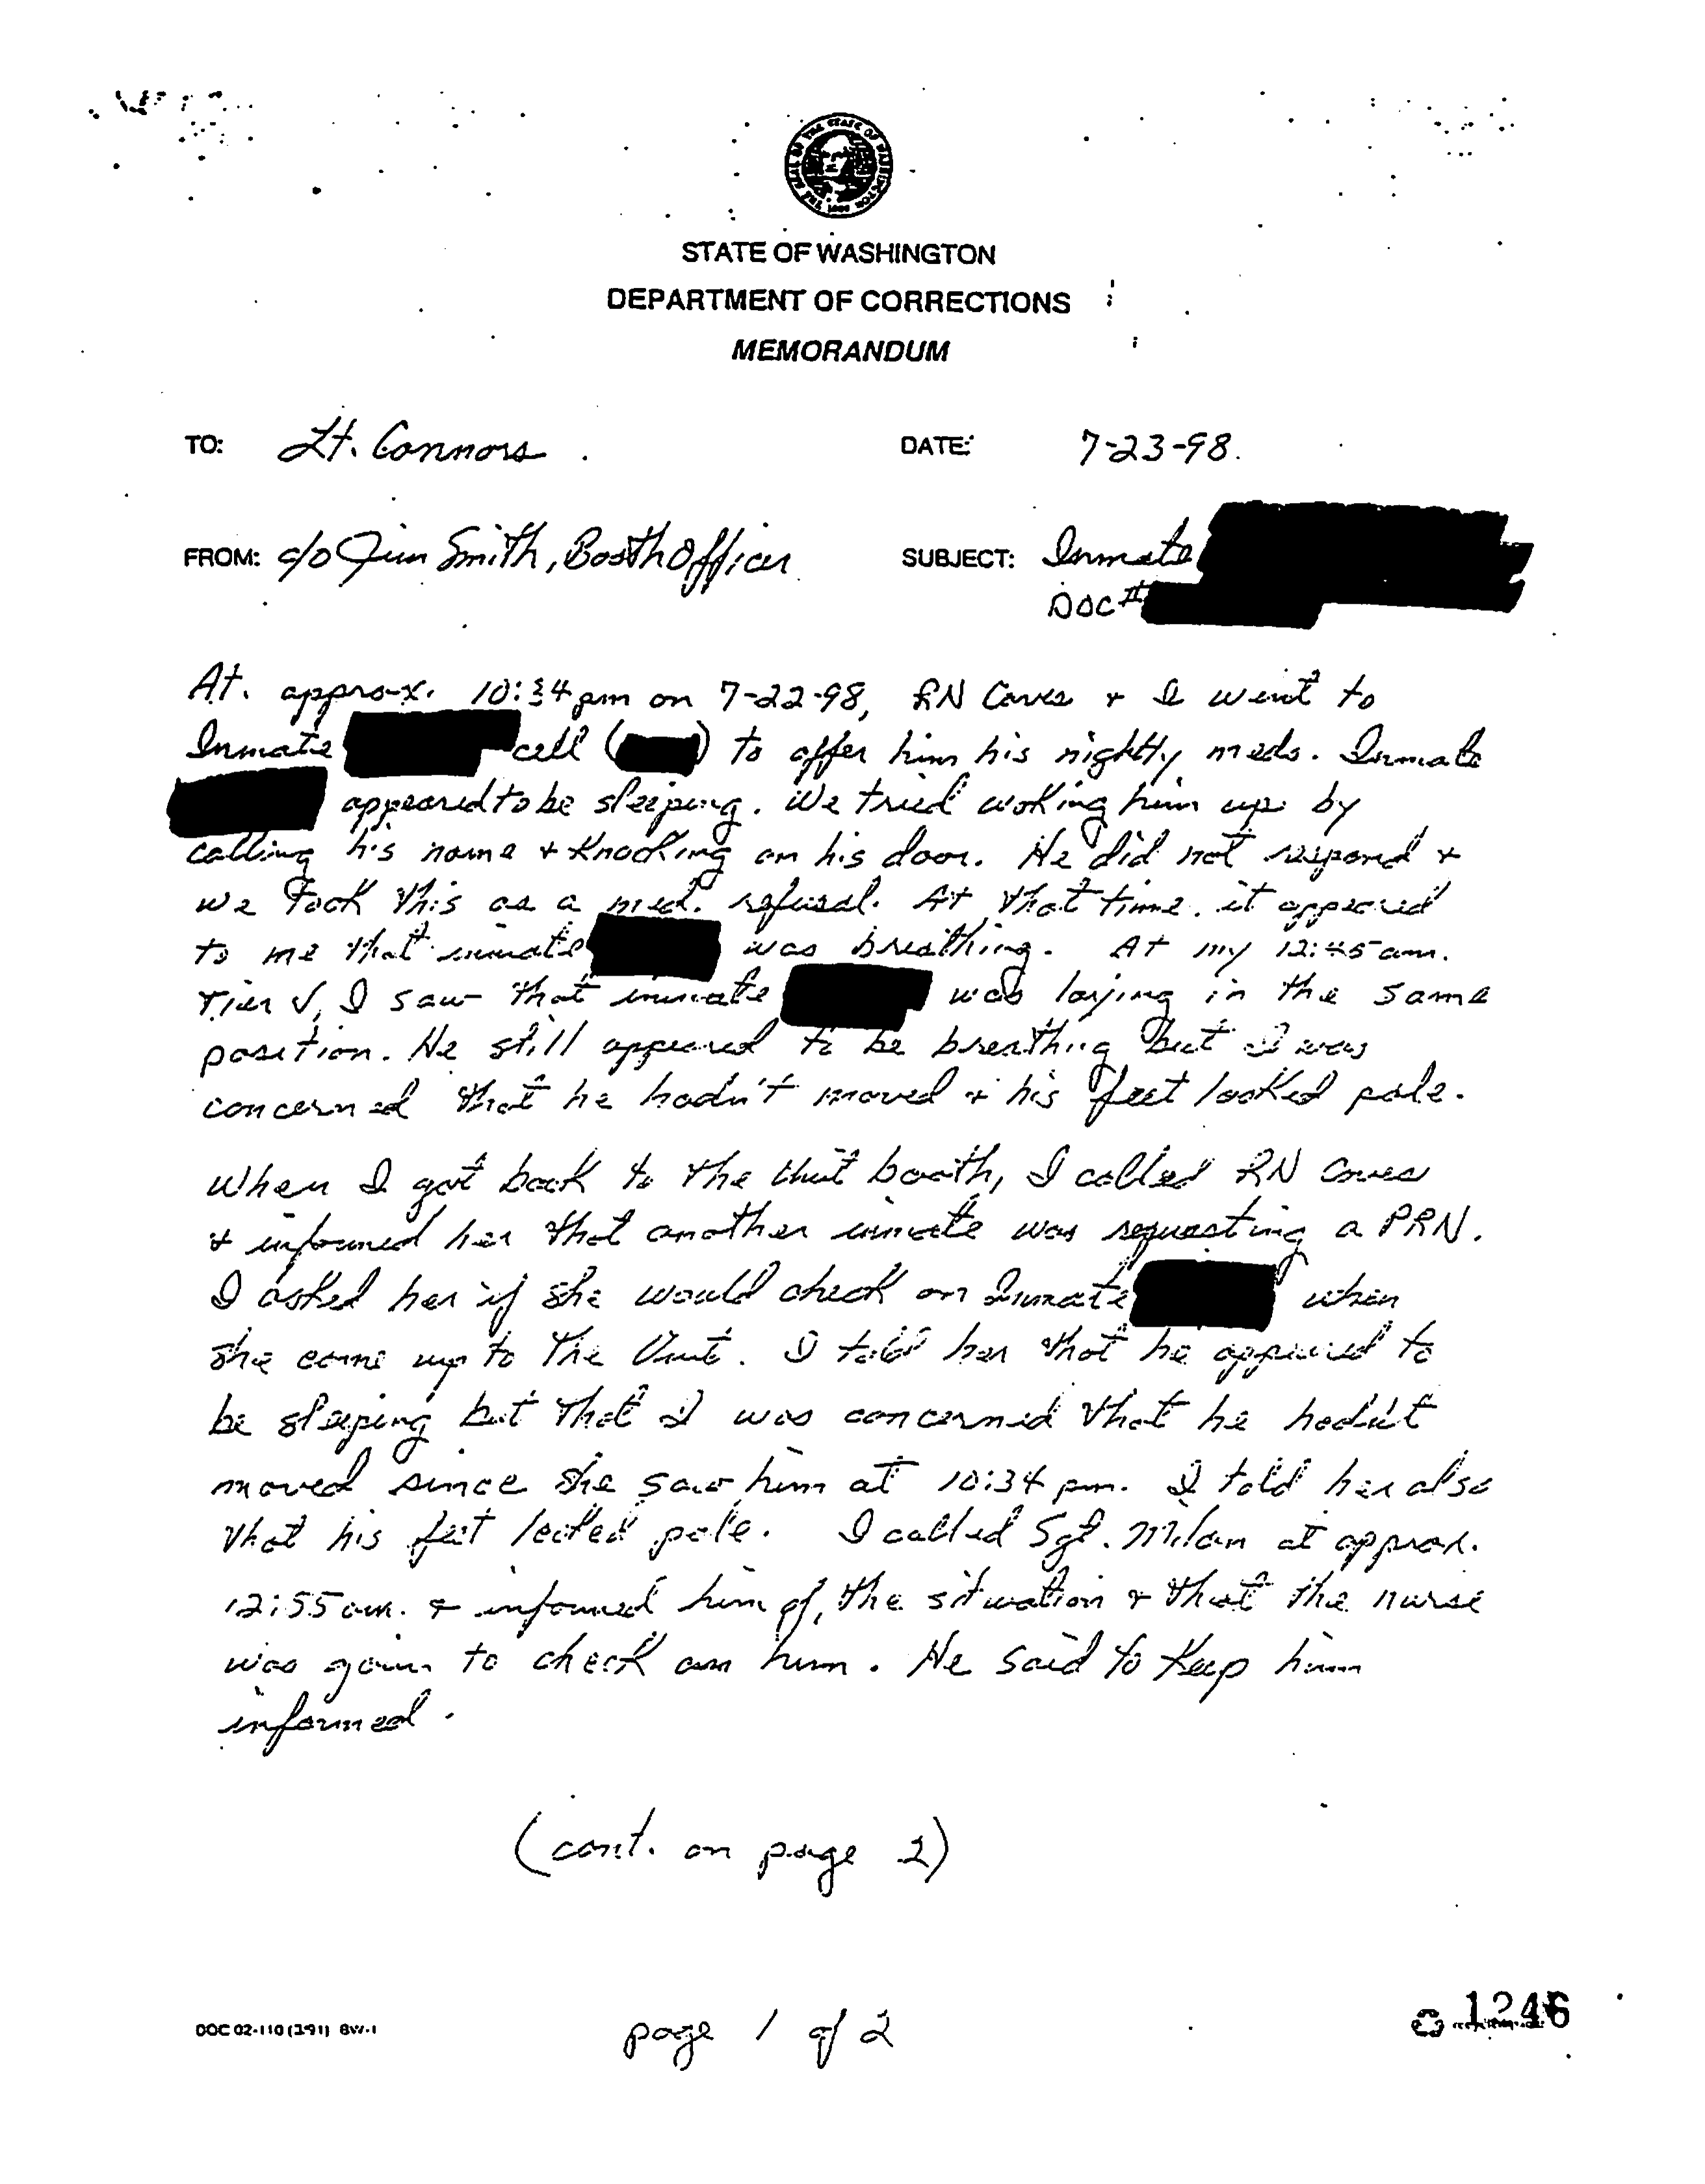 STATE OF WASHINGTON
DEPARTMENT OF CORRECTIONS
MEMORANDUM
TO: Lt. Connors
DATE: 7-23-98.
FROM: c/o Jim Smith, Booth Officer
SUBJECT: Inmate
DOC#
At. approx. 10:34 pm on 7-22-98, RN & I went to
Inmate cell ( ) to offer him his nightly meds. Inmate
appeared to be sleeping. We tried woking him up by
calling his name & knocking on his door. He did not respond &
we took this as a med. refusal. At that time. it appeared
to me that inmate was breathing. At my 12:45 am.
Tier √, I saw that inmate was laying in the same
position. He still appeared to be breathing but I was
concerned that he hadn't moved & his feet looked pale.
When I got back to the Unit booth, I called RN
& informed her that another inmate was requesting a PRN.
I asked her if she would check on Inmate when
she come up to the Unit. I told her that he appeared to
be sleeping but that I was concerned that he hadn't
moved since she saw him at 10:34 pm. I told her also
that his feet looked pale. I called Sgt. Milam at approx.
12:55 am. & informed him of, the situation & that the nurse
was goin to check on him. He said to keep him
informed.
(cont. on page 2)
DOC 02-110 (3/91) BW-1
page 1 of 2
1246